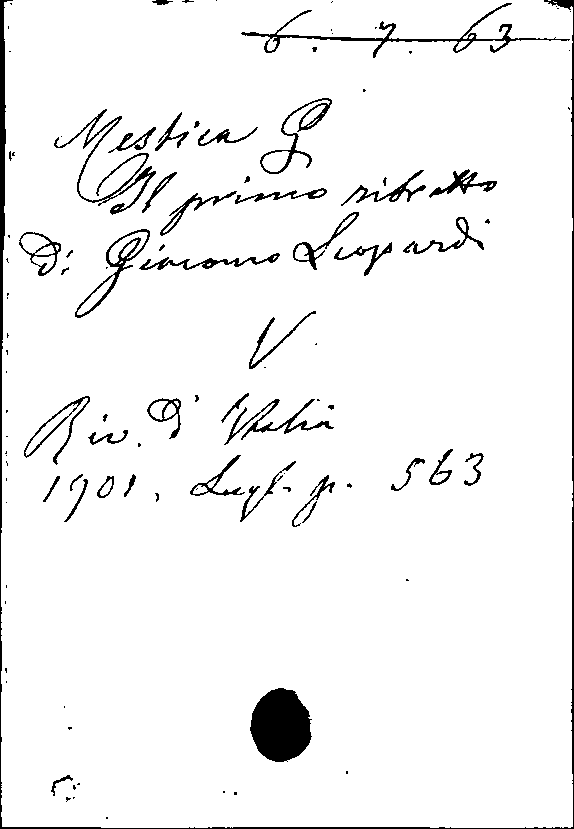 6. 7. 63
Mestica G
Il primo ritratto
di Giacomo Leopardi
V
Riv. d'Italia
1901, Lugl. p. 563